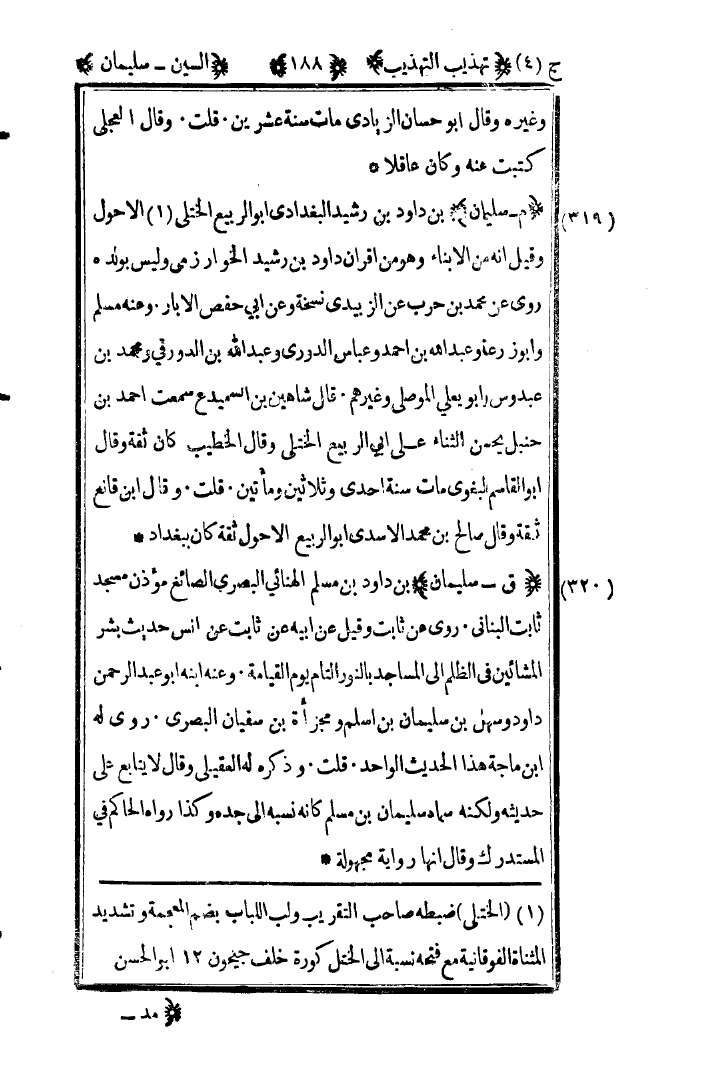 ج (٤) ﴿ تهذيب التهذيب ﴾ ﴿ ١٨٨ ﴾ ﴿ السين ــ سليمان ﴾
وغيره وقال ابو حسان الزيادى مات سنة عشرين · قلت · وقال العجلى
كتبت عنه وكان عاقلا *
(٣١٩) ﴿ م ــ سليمان ﴾ بن داود بن رشيد البغدادى ابو الربيع الختلى (١) الاحول
وقيل انه من الابناء وهو من اقران داود بن رشيد الخوارزمى وليس بولده
روى عن محمد بن حرب عن الزبيدى نسخة وعن ابي حفص الابار · وعنه مسلم
وابو زرعة وعبد الله بن احمد وعباس الدورى وعبد الله بن الدورقي ومحمد بن
عبدوس وابو يعلى الموصلى وغيرهم · قال شاهين بن السميدع سمعت احمد بن
حنبل يحسن الثناء على ابي الربيع الختلى وقال الخطيب كان ثقة وقال
ابو القاسم البغوى مات سنة احدى وثلاثين ومأتين · قلت · وقال ابن قانع
ثقة وقال صالح بن محمد الاسدى ابو الربيع الاحول ثقة كان ببغداد *
(٣٢٠) ﴿ ق ــ سليمان ﴾ بن داود بن مسلم الهنائي البصرى الصائغ مؤذن مسجد
ثابت البنانى · روى عن ثابت وقيل عن ابيه عن ثابت عن انس حديث بشر
المشائين فى الظلم الى المساجد بالنور التام يوم القيامة · وعنه ابنه ابو عبد الرحمن
داود وسهل بن سليمان بن اسلم ومجزأة بن سفيان البصرى · روى له
ابن ماجة هذا الحديث الواحد · قلت · وذكره له العقيلى وقال لا يتابع على
حديثه ولكنه سماه سليمان بن مسلم كانه نسبه الى جده وكذا رواه الحاكم في
المستدرك وقال انها رواية مجهولة *
(١) (الختلى) ضبطه صاحب التقريب ولب اللباب بضم المعجمة وتشديد
المثناة الفوقانية مع فتحه نسبة الى الختل كورة خلف جيحون ١٢ ابو الحسن
﴿ مد ــ